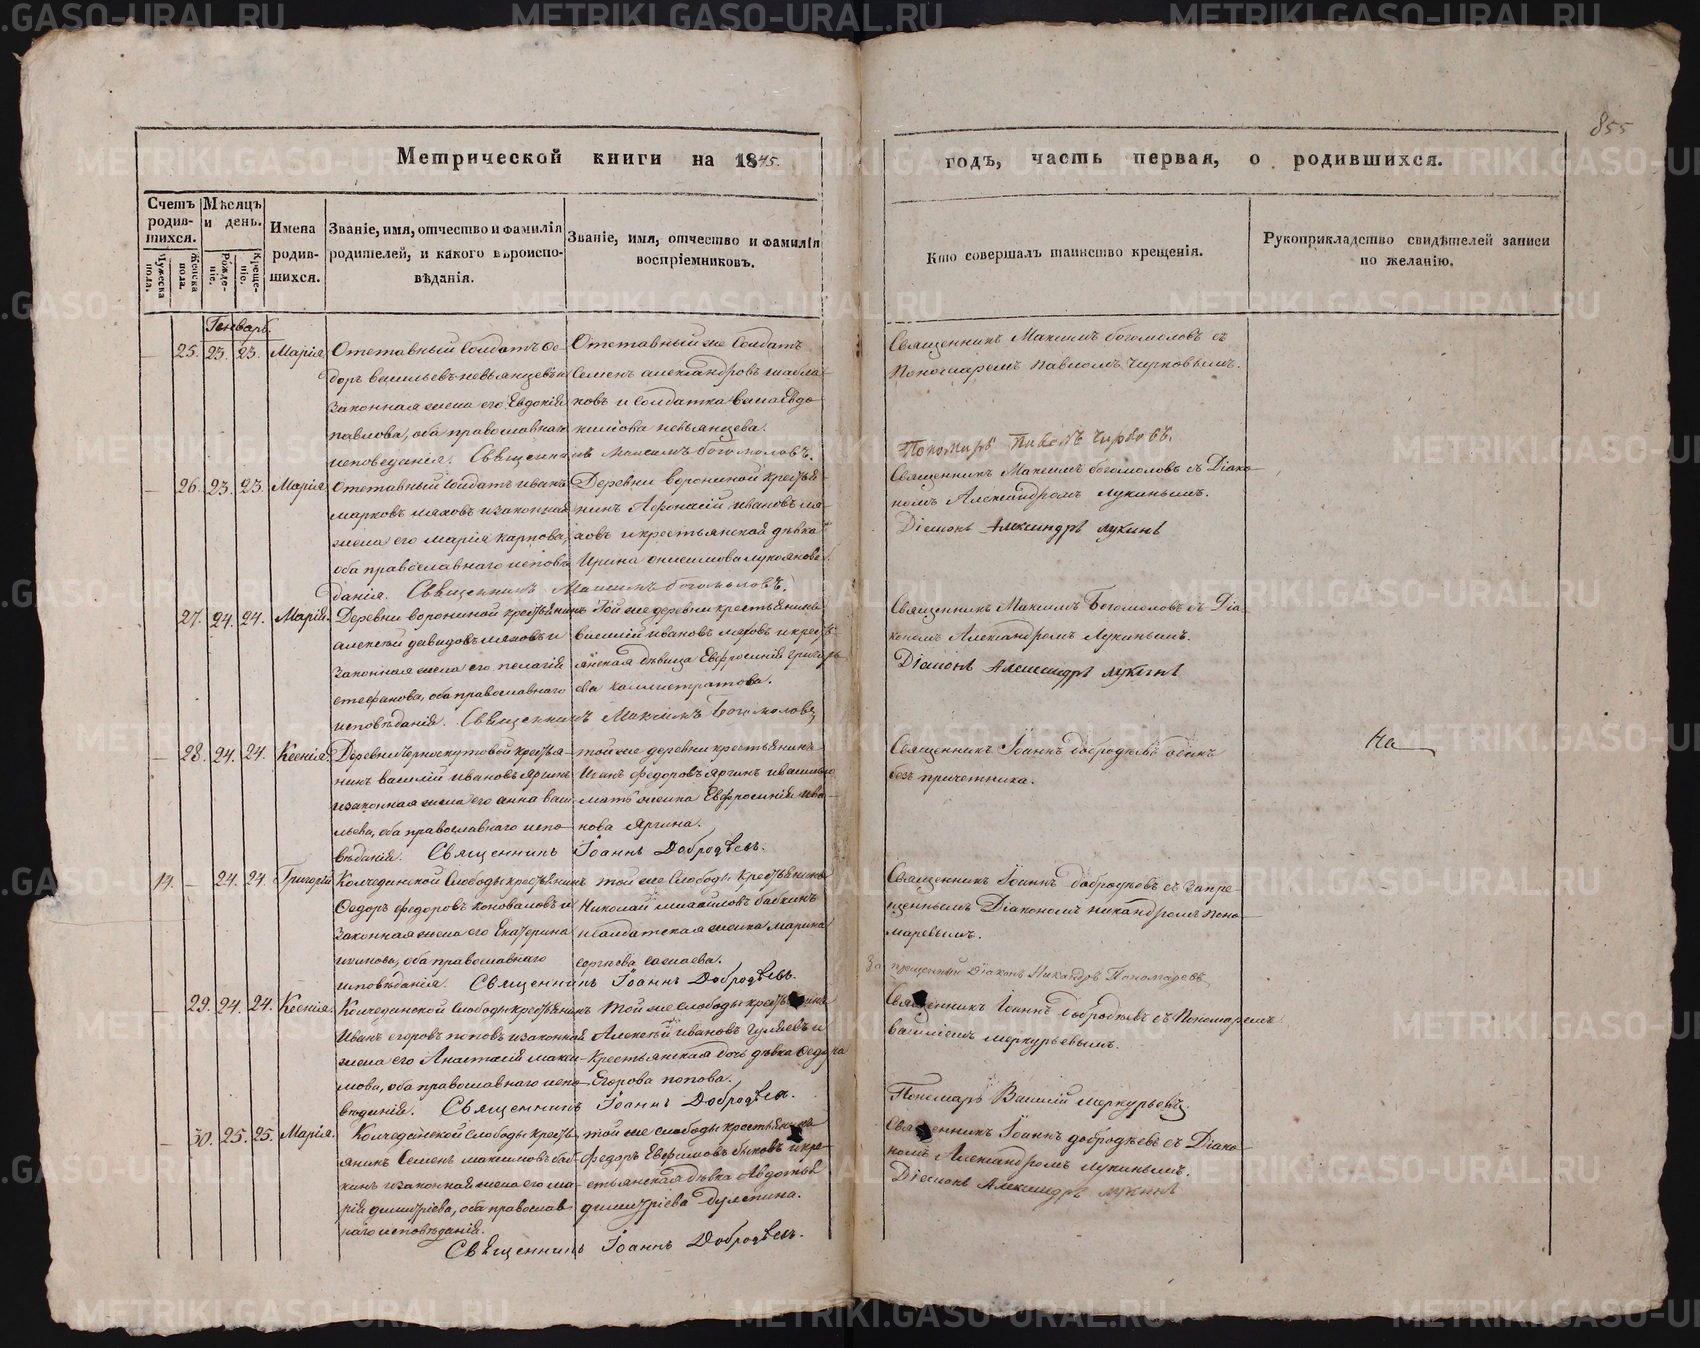 855
Метрической книги на 1845.
годъ, часть первая, о родившихся.
Счетъ родив-шихся.
Мужеска пола.
Женска пола.
Мѣсяцъ и день.
Рожде-ніе.
Креще-ніе.
Имена родив-шихся.
Званіе, имя, отчество и фамилія родителей, и какого вѣроиспо-вѣданія.
Званіе, имя, отчество и фамилія воспріемниковъ.
Кто совершалъ таинство крещенія.
Рукоприкладство свидѣтелей записи по желанію.
Генварь.
25. 23. 23. Марія
Отставный Солдатъ Ѳе-
доръ васильевъ невьянцевъ и
законная жена его Евдокія
павлова, оба православнаго
исповеданія. Священникъ Максимъ Богомоловъ.
Отставный же Солдатъ
Семенъ александровъ
ковъ и Солдатка
невьянцева.
Священникъ Максимъ богомоловъ съ
Пономаремъ Павломъ Чирковымъ.
Пономарь Павелъ Чирковъ.
26. 23. 23. Марія
Отставный Солдатъ иванъ
марковъ ляховъ и законная
жена его марія карпова,
оба православнаго исповѣ
данія. Священникъ Максимъ Богомоловъ.
Деревни ворониной кресть
нинъ Афонасій ивановъ ля-
ховъ и крестьянская дѣвка
Ирина онисимова
Священникъ Максимъ богомоловъ съ Діако-
номъ Александромъ лукинымъ.
Діаконъ Александръ лукинъ
27. 24. 24. Марія.
Деревни ворониной крестьянинъ
алексѣй давидовъ ляховъ и
законная жена его пелагія
стефанова, оба православнаго
исповѣданія. Священникъ Максимъ Богомоловъ
Той же деревни крестьянинъ
василій ивановъ ляховъ и кресть
янская дѣвица Евфросинія григорь
ева каллистратова.
Священникъ Максимъ Богомоловъ съ Діа
кономъ Александромъ Лукинымъ.
Діаконъ Александръ лукинъ
28. 24. 24. Ксенія.
Деревни Черноскутовой крестья-
нинъ василій ивановъ Яргинъ
и законная жена его анна васи
льева, оба православнаго испо-
вѣданія. Священникъ Іоаннъ Добродѣевъ.
той же деревни крестьянинъ
Иванъ федоровъ Яргинъ и
женка Евфросинія ива-
нова Яргина.
Священникъ Іоаннъ добродѣевъ одинъ
безъ причетника.
На
14. 24. 24. Григорій
Колчеданской Слободы крестьянинъ
Ѳедоръ федоровъ коноваловъ и
законная жена его Екатерина
оба православнаго
исповѣданія. Священникъ Іоаннъ Добродѣевъ.
той же Слободы крестьянинъ
Николай михайловъ бабкинъ
и Солдатская женка марина
сергѣева
Священникъ Іоаннъ добродѣевъ съ запре-
щеннымъ Діакономъ никандромъ поно-
маревымъ.
Запрещенный Діаконъ Никандръ Пономаревъ
29. 24. 24. Ксенія.
Колчеданской Слободы крестьянинъ
Иванъ егоровъ поповъ и законная
жена его Анастасія макси-
мова, оба православнаго испо-
вѣданія. Священникъ Іоаннъ Добродѣевъ.
той же Слободы крестьянинъ
Алексѣй ивановъ Гуляевъ и
Крестьянская дочь дѣвка Ѳедора
Егорова попова.
Священникъ Іоаннъ добродѣевъ съ Пономаремъ
василіемъ меркурьевымъ.
Пономарь Василій меркурьевъ.
30. 25. 25. Марія.
Колчеданской Слободы кресть
янинъ Семенъ максимовъ баб-
кинъ и законная жена его ма-
рія димитріева, оба православ
наго исповѣданія.
Священникъ Іоаннъ Добродѣевъ.
той же слободы крестьянинъ
Федоръ Евфимовъ быковъ и кре-
стьянская дѣвка Авдотья
димитріева
Священникъ Іоаннъ добродѣевъ съ Діако-
номъ Александромъ лукинымъ.
Діаконъ Александръ лукинъ
METRIKI.GASO-URAL.RU